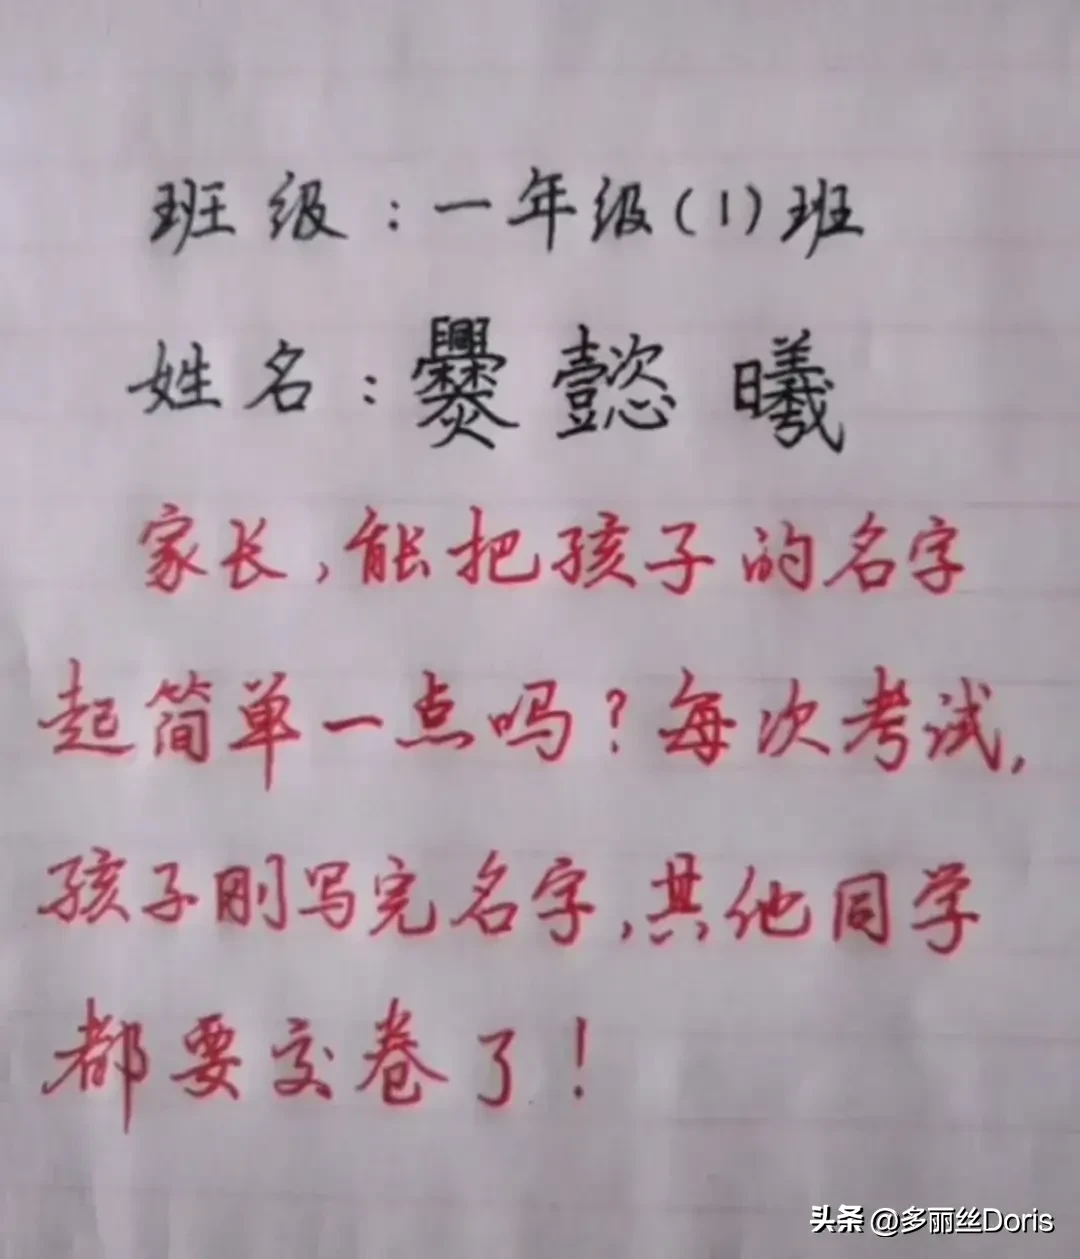 班级：一年级(1)班
姓名：爨懿曦
家长，能把孩子的名字
起简单一点吗？每次考试，
孩子刚写完名字，其他同学
都要交卷了！
头条 @多丽丝Doris